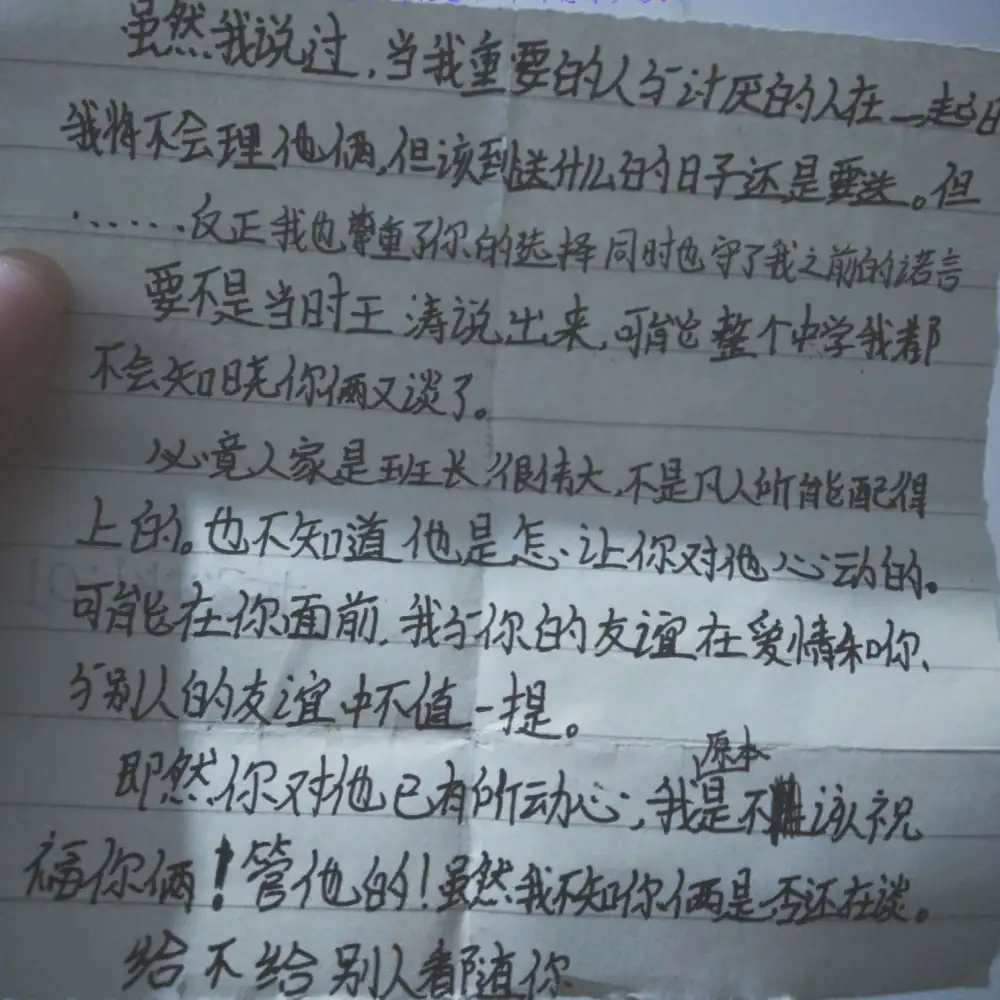 虽然我说过,当我重要的人与讨厌的人在一起
我将不会理他俩,但该到送什么的日子还是要送。但
......反正我也尊重了你的选择同时也守了我之前的诺言
要不是当时王涛说出来,可能整个中学我都
不会知晓你俩又谈了。
必竟人家是班长,很伟大,不是凡人所能配得
上的。也不知道他是怎、让你对他心动的。
可能在你面前,我与你的友谊在爱情和你、
与别人的友谊中不值一提。
即然你对他已有所动心,我原本是不该祝
福你俩!管他的!虽然我不知你俩是否还在谈。
给不给别人看都随你